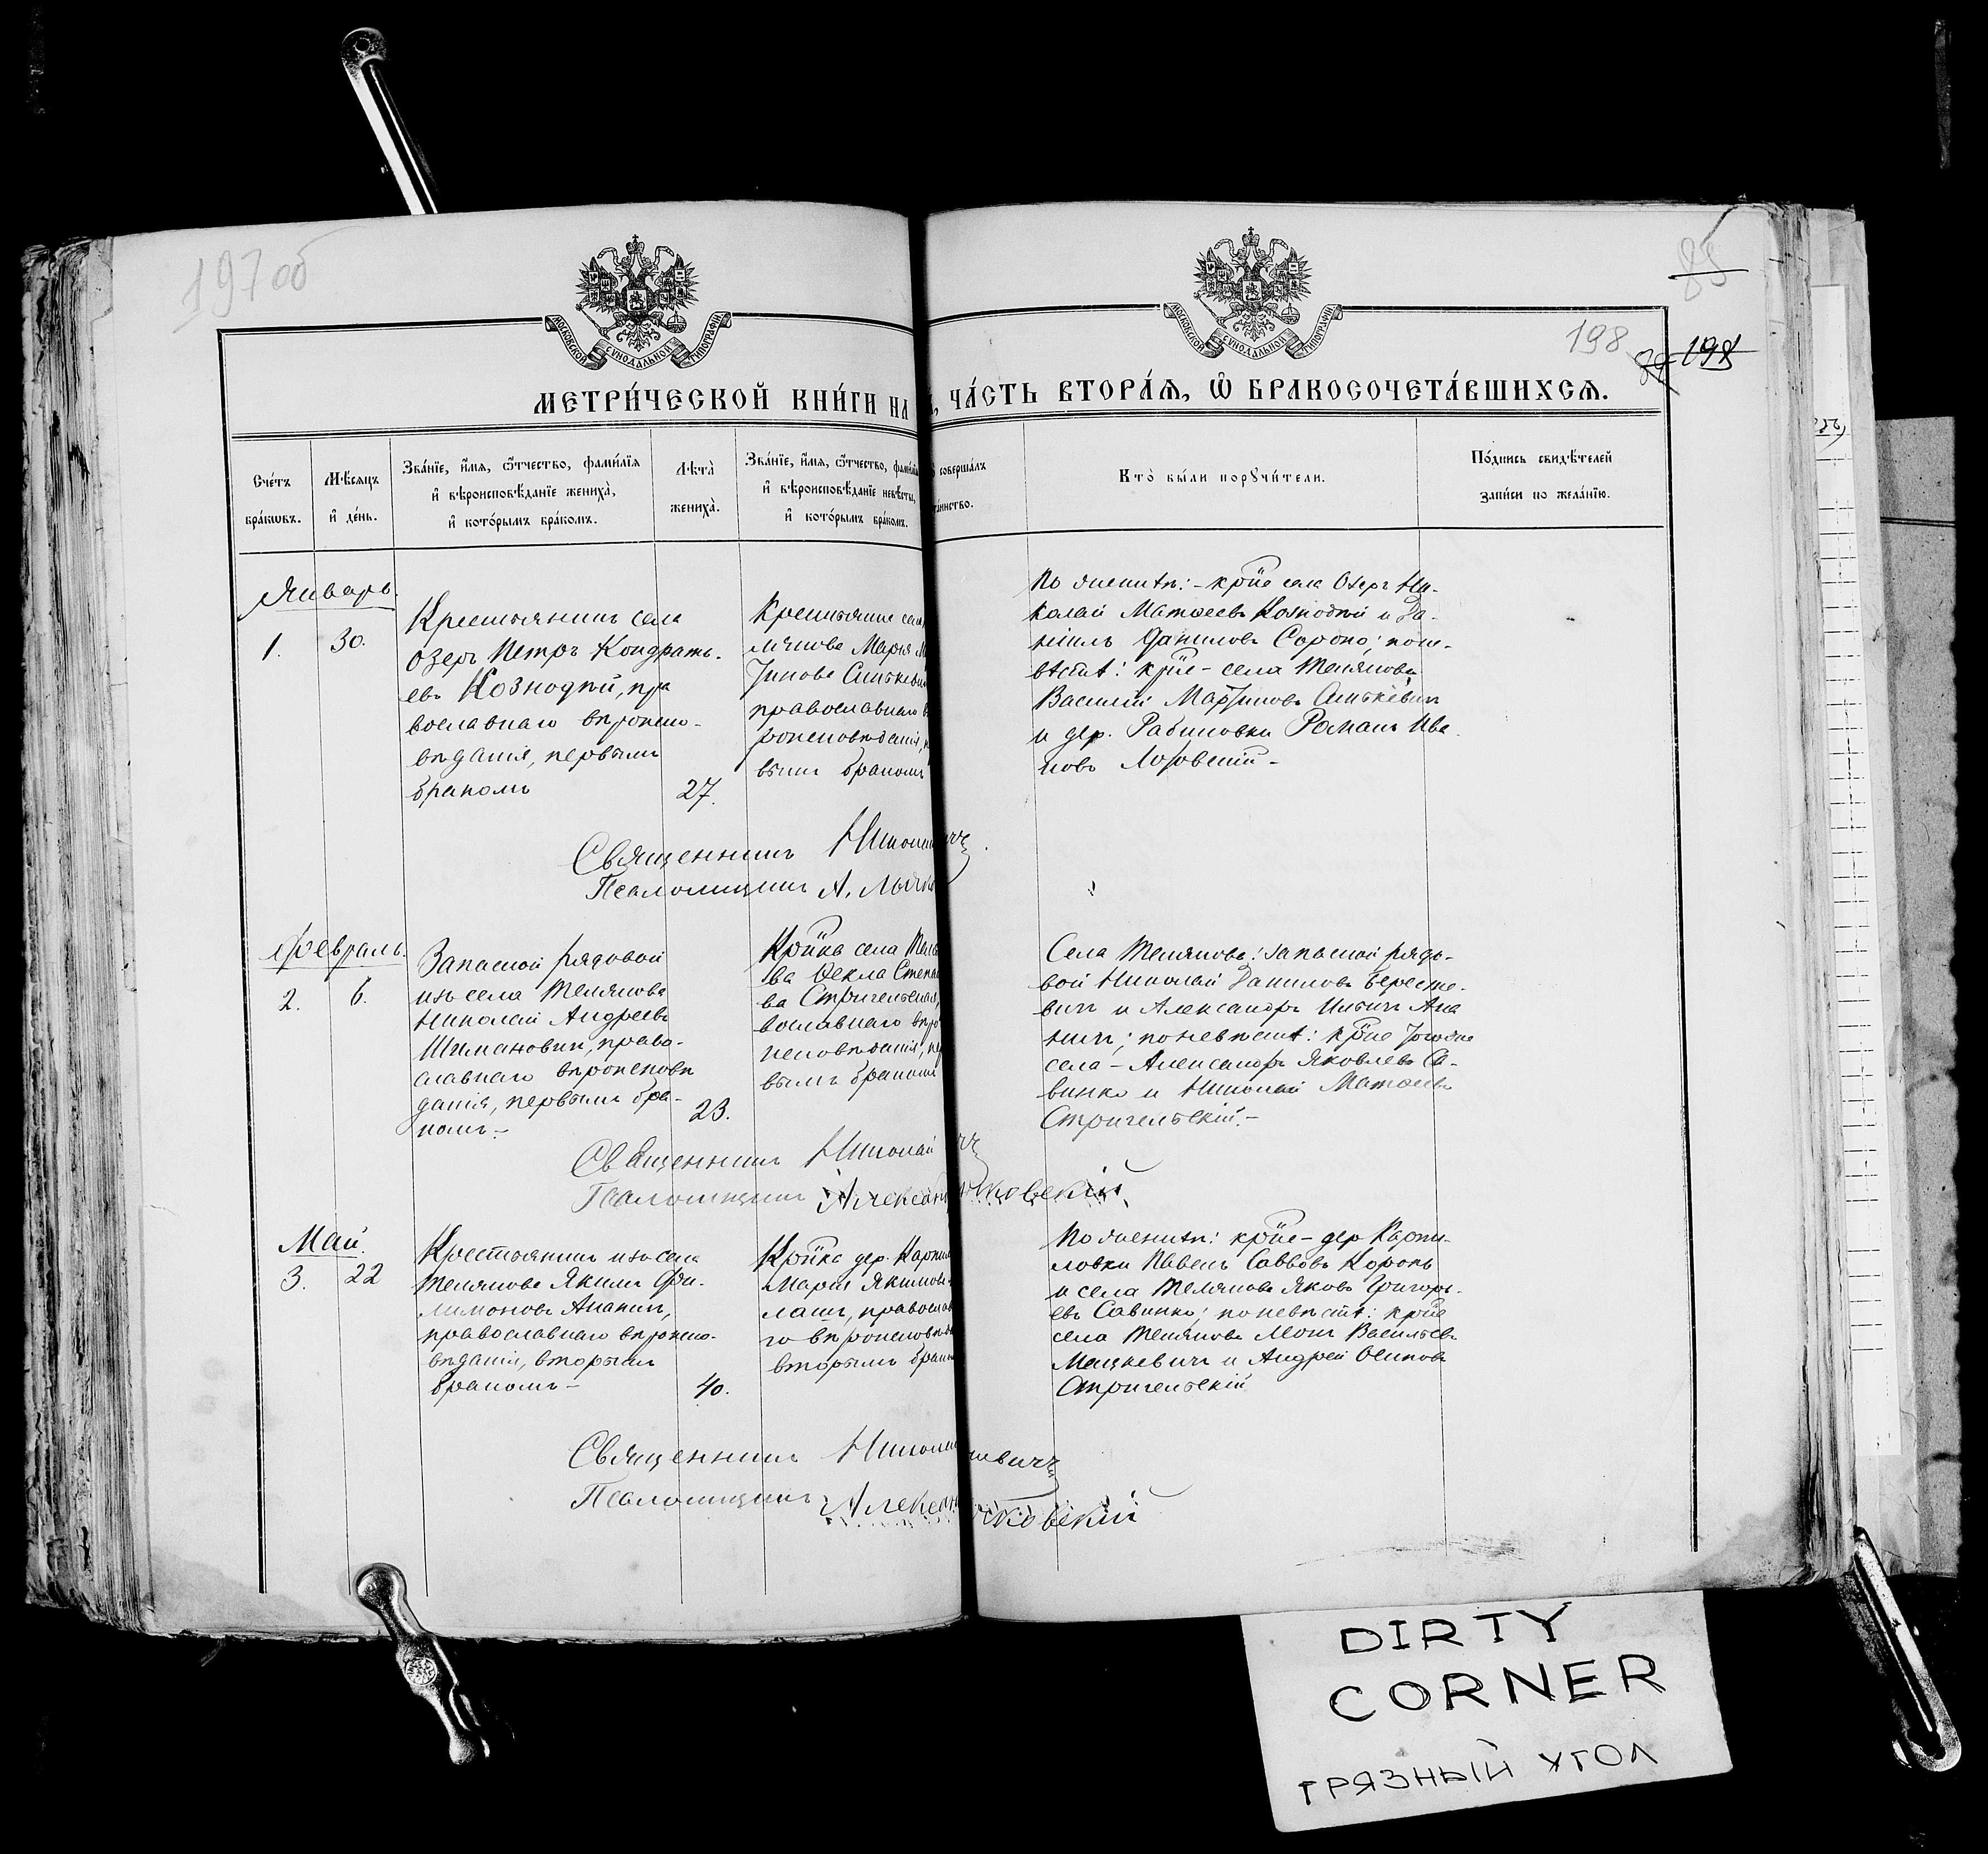 197 об
85
198
198
МОСКОВСКОЙ СѴНОДАЛЬНОЙ ТИПОГРАФІИ
МОСКОВСКОЙ СѴНОДАЛЬНОЙ ТИПОГРАФІИ
МЕТРИ́ЧЕСКОЙ КНИ́ГИ НА
ЧА́СТЬ ВТОРА́Ѧ, Ѽ БРАКОСОЧЕТА́ВШИХСѦ.
Сче́тъ бра́кѡвъ.
Мѣ́сѧцъ и҆ де́нь.
Зва́нїе, и҆́мѧ, ѻ҆́тчество, фами́лїѧ
и҆ вѣроисповѣ́данїе жениха̀,
и҆ кото́рымъ бра́комъ.
Лѣ́та̀ жениха̀.
Зва́нїе, и҆́мѧ, ѻ҆́тчество, фами́
и҆ вѣроисповѣ́данїе невѣ́сты,
и҆ кото́рымъ бра́комъ.
соверша́лъ
та́инство.
Кто̀ бы́ли порꙋчи́тели.
По́дпись свидѣ́телей
за́писи по жела́нїю.
Январь.
1.
30.
Крестьянинъ села
Озеръ Петръ Кондрать-
евъ Кознодпй, пра
вославнаго вѣроиспо-
вѣданія, первымъ
бракомъ
27.
Крестьянка села
Марія
православнаго в
роисповѣданія,
вымъ бракомъ
По женихѣ: - крⷭ҇не села Озеръ Ни-
колай Матѳеевъ Кознодпй и Да-
ніилъ Даниловъ Сороко; по не-
вѣстѣ: крⷭ҇не - села Телянова
Василій
и дер. Рабиновки Романъ Ива
новъ Лозовскій -
Священникъ Никола
Псаломщикъ А. Лычк
Февраль.
2.
6.
Запасной рядовой
изъ села Телянова
Николай Андреевъ
Шимановичъ, право-
славнаго вѣроисповѣ
данія, первымъ бра-
комъ.-
23.
села Теля
ва Ѳекла Степан
ва Стригельская,
вославнаго вѣро
исповѣданія, пе
вымъ бракомъ
Села Телянова: запасной рядо-
вой Николай Даниловъ Бересте-
вичъ и Александръ Ильичъ Ана
ничъ; по невѣстѣ: того же
села - Александръ Яковлевъ Са-
винко и Николай Матѳеевъ
Стригельскій.-
Священникъ Николай
Псаломщикъ Александ чковскій
Май.
3.
22
Крестьянинъ изъ села
Телянова Якимъ Фи-
лимоновъ Ананичъ,
православнаго вѣроиспо-
вѣданія, вторымъ
бракомъ -
40.
дер. Карпил
Марія Якимова
православ
го вѣроисповѣда
вторымъ брако
По женихѣ: - дер Карпи-
ловки Павелъ Саввовъ Король
и села Телянова Яковъ Григорь-
евъ Савинко; по невѣстѣ:
села Телянова Леонъ Васильевъ
Мацкевичъ и Андрей Осиповъ
Стригельскій
Священникъ Никола евичъ
Псаломщикъ Алексан чковскій
DIRTY
CORNER
ГРЯЗНЫЙ УГОЛ